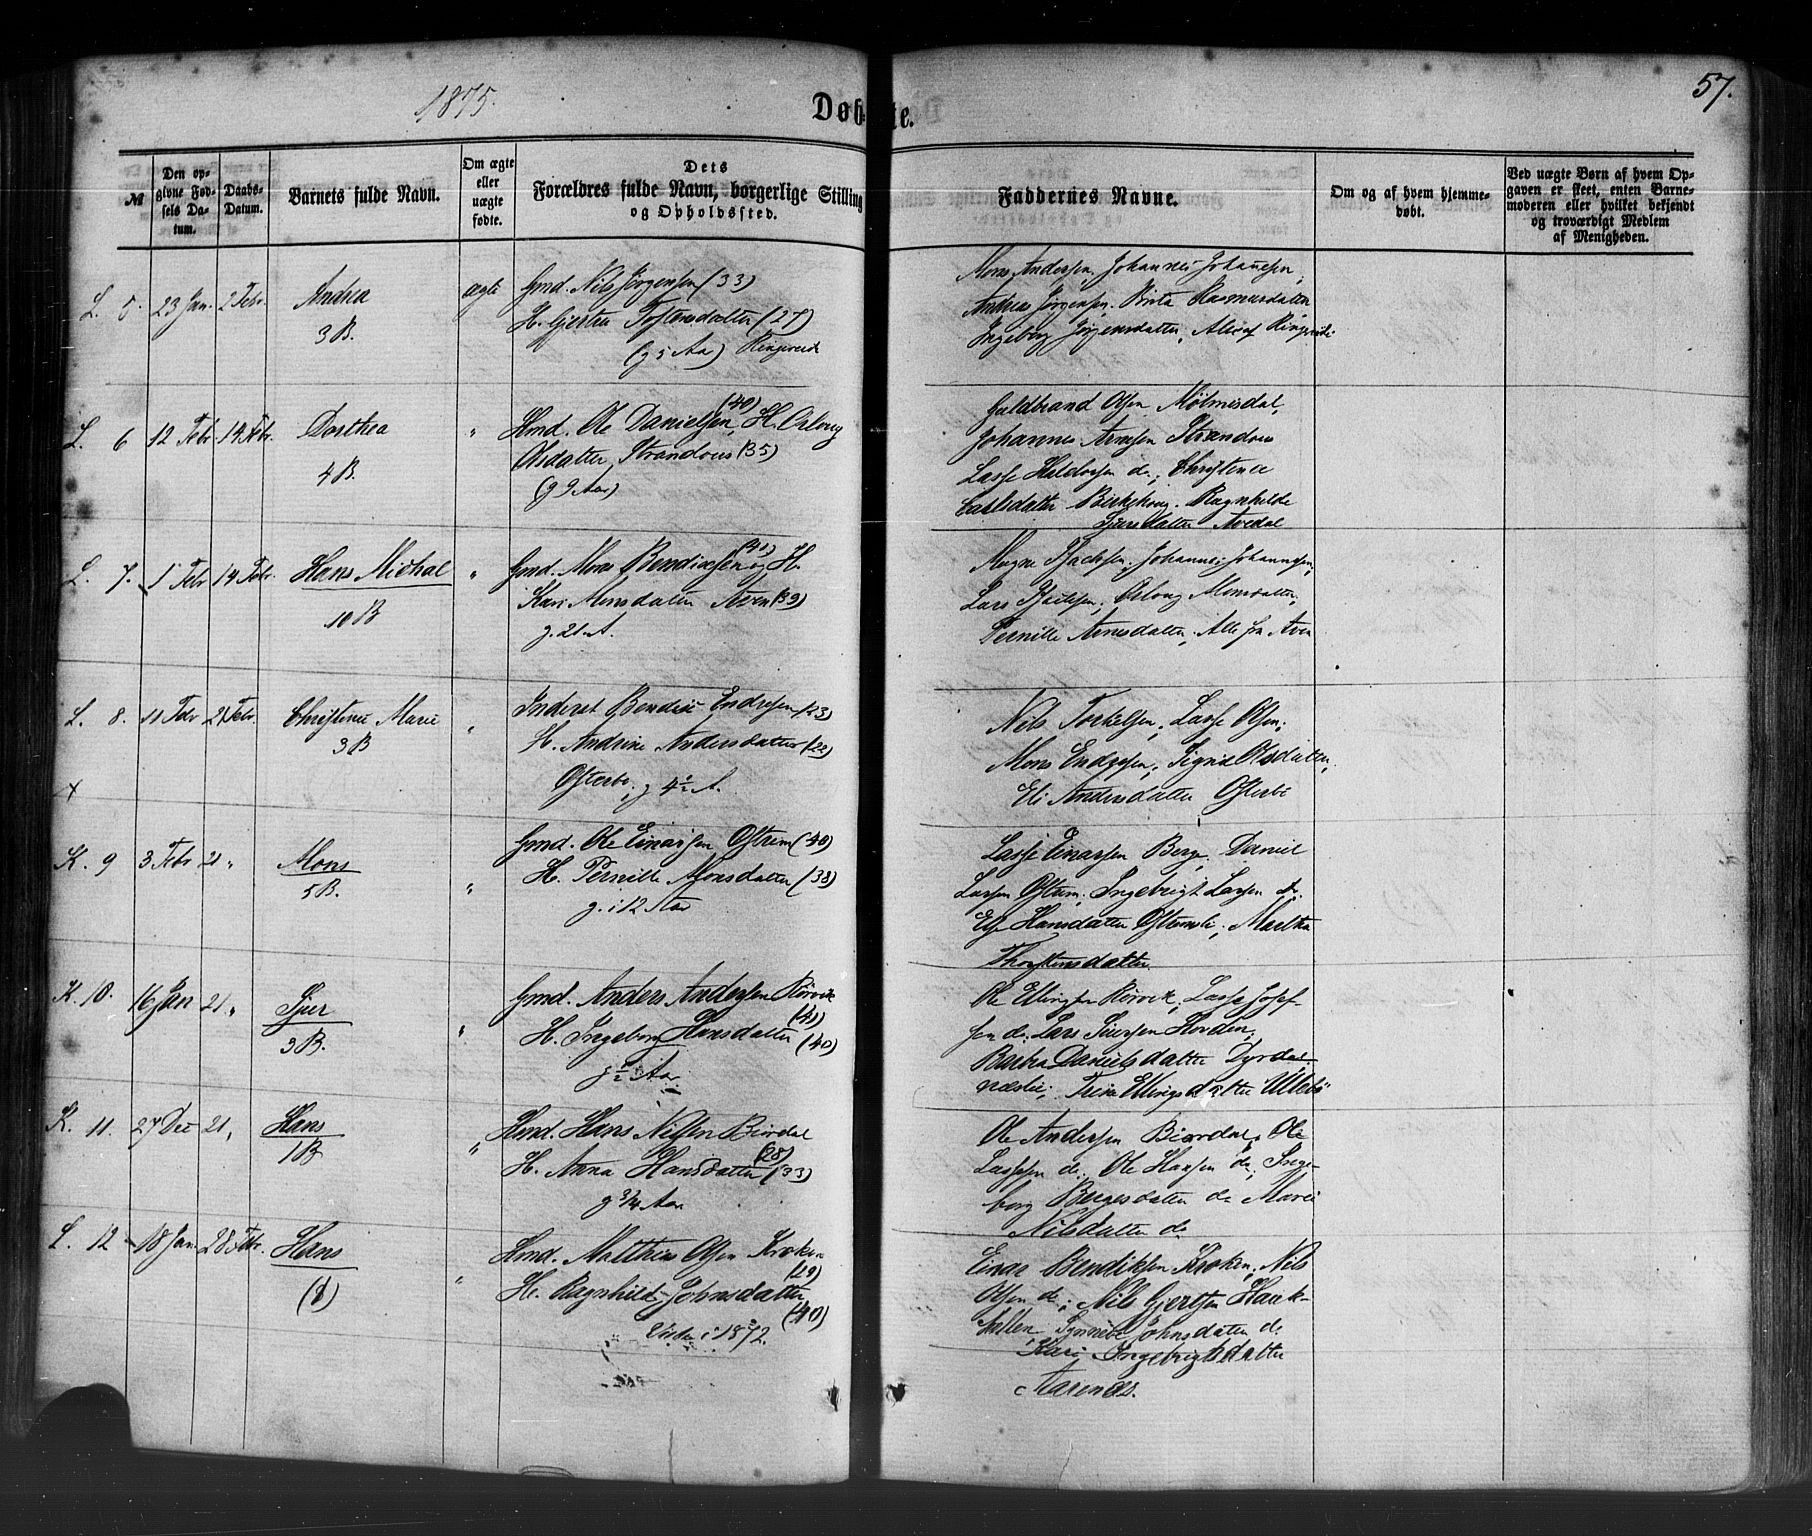 1875.
Døbte.
57.
№
Den opgivne Fødsels Datum.
Daabs-Datum.
Barnets fulde Navn.
Om ægte eller uægte fødte.
Dets Forældres fulde Navn, borgerlige Stilling og Opholdssted.
Faddernes Navne.
Om og af hvem hjemmedøbt.
Ved uægte Børn af hvem Opgaven er skeet, enten Barnemoderen eller hvilket bekjendt og troværdigt Medlem af Menigheden.
L. 5. 23 Jan. 2 Febr. Andrea ægte Gmd. Nils Jørgensen (33)
3 B. H. Gjertru Tostensdatter (27)
(g 5 Aa) Ringereid
Mons Andersen, Johannes Johannesen,
Andreas Jørgensen. Brita Rasmusdatter
Ingeborg Jørgensdatter, Alle af Ringereide
L. 6 12 Febr 14 Febr. Dorthea " Hmd. Ole Danielsen (40), H. Osloug
4 B. Olsdatter, Strandous (35)
(g 9 Aar)
Guldbrand Olsen Mølmesdal,
Johannes Arnesen Strandous
Lasse Haldorsen do; Christence
Carlsdatter Birkshoug. Ragnhilde
Sjursdatter Avedal
L. 7. 1 Febr 14 Febr. Hans Michal " Gmd. Mons Bendixsen (41) og H.
10 B Kari Monsdatter Aven (39)
g. 21 A.
Mogne Isachsen, Johannes Johannesen,
Lars Isachsen, Oslong Monsdatter,
Pernille Arnesdatter, Alle fra Aven
L. 8. 11 Febr 21 Febr. Christence Marie " Inderst Bendix Endresen (23)
3 B H. Andrine Andersdatter (22)
Osterbø, g 4½ A.
Nils Torkelsen, Lasse Olsen,
Mons Endresen, Signe Olsdatter,
Eli Andersdatter Osterbø
x
K. 9 3 Febr 21 " Mons " Gmd. Ole Einarsen Ostrem (40)
5 B. H. Pernille Monsdatter (38)
g. i 12 Aar
Lasse Einarsen Berge, Daniel
Larsen Ostrem, Ingebrigt Larsen do.
Else Hansdatter Ostremli, Martha
Thorstensdatter
K. 10. 16 Jan 21 " Sjur " Gmd. Anders Andersen Rørvik (41)
3 B. H. Ingeborg Hansdatter (40)
g ½ Aar
Ole Ellingsen Rørvik, Lasse Josef-
sen do. Lars Siursen Hovden,
Barbra Danielsdatter Dyrdal
næslie, Trine Ellingsdatter Ullebø
K. 11. 27 Dec 21 " Hans " Hmd. Hans Nilsen Biordal (28)
1 B H. Anna Hansdatter (33)
g ¾ Aar
Ole Andersen Biordal, Ole
Lassesen do, Ole Hansen do, Inge-
borg Bergesdatter do Marie
Nilsdatter do
L. 12 18 Jan 28 Febr. Hans " Hmd. Matthias Olsen Kroken (29)
(8) H. Ragnhild Johnsdatter (40)
Viede i 1872.
Einar Bendiksen Kroken, Nils
Olsen do, Nils Gjertsen Hauk-
Synneve Johnsdatter do
Kari Ingebrigtsdatter